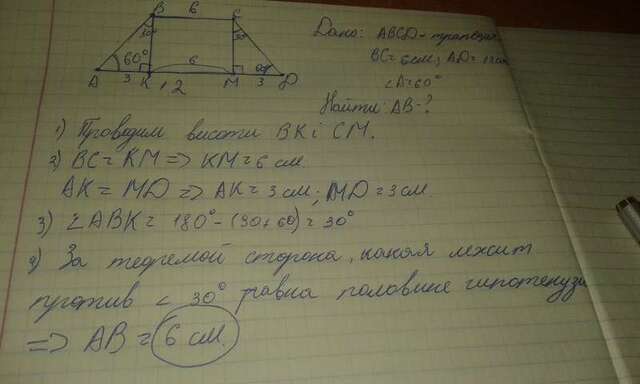 B 6 C
30° 30°
60° 6 60°
A 3 K 12 M 3 D
Дано: ABCD - трапеция
BC = 6 см; AD = 12 см
∠A = 60°
Найти: AB - ?
1) Проведим висоти BK і CM.
2) BC = KM => KM = 6 см
AK = MD => AK = 3 см; MD = 3 см
3) ∠ABK = 180° - (90 + 60) = 30°
4) За теоремой сторона, какая лежит
против < 30° равна половине гипотенузи
=> AB = 6 см.